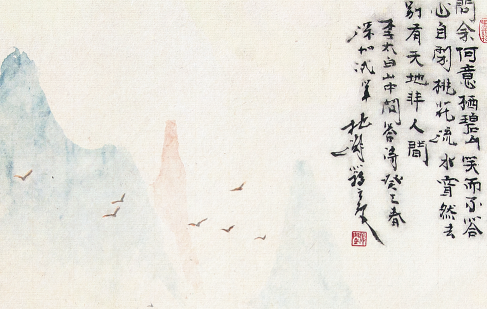 問余何意栖碧山笑而不答
心自閑桃花流水窅然去
別有天地非人間
李太白山中問答詩癸巳春
深圳